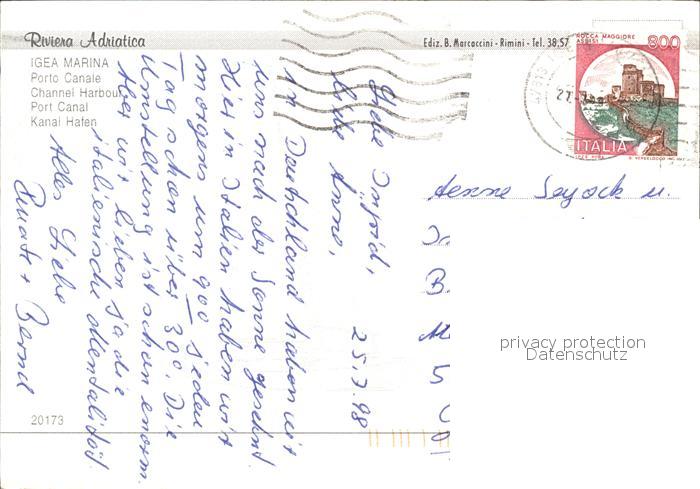 Riviera Adriatica
IGEA MARINA
Porto Canale
Channel Harbour
Port Canal
Kanal Hafen
Ediz. B. Marcaccini - Rimini - Tel. 38.57
ROCCA MAGGIORE
ASSISI
800
ITALIA
25.7.98
Liebe Ingrid,
liebe Anne,
in Deutschland haben wir
uns nach der Sonne gesehnt.
Hier in Italien haben wir
morgens um 9oo jeden
Tag schon über 30°. Die
Umstellung ist schon enorm.
Aber wir lieben ja die
italienische Mentalität.
Alles Liebe
Renate + Bernd
Seyock u.
privacy protection
Datenschutz
20173